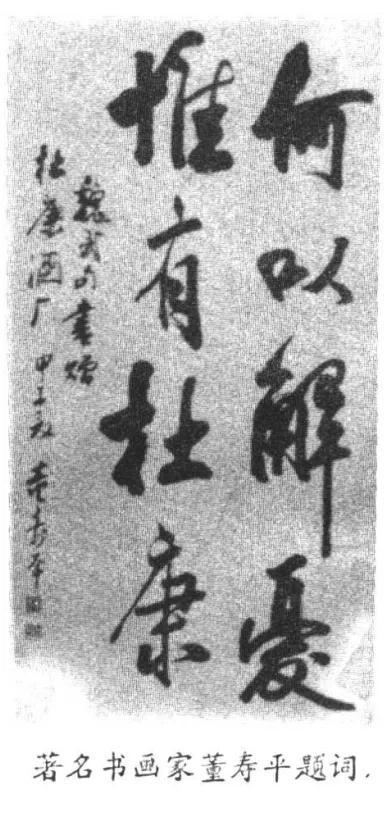 何以解憂
惟有杜康
魏武句書赠
杜康酒厂 甲子秋 董寿平
著名书画家董寿平题词.